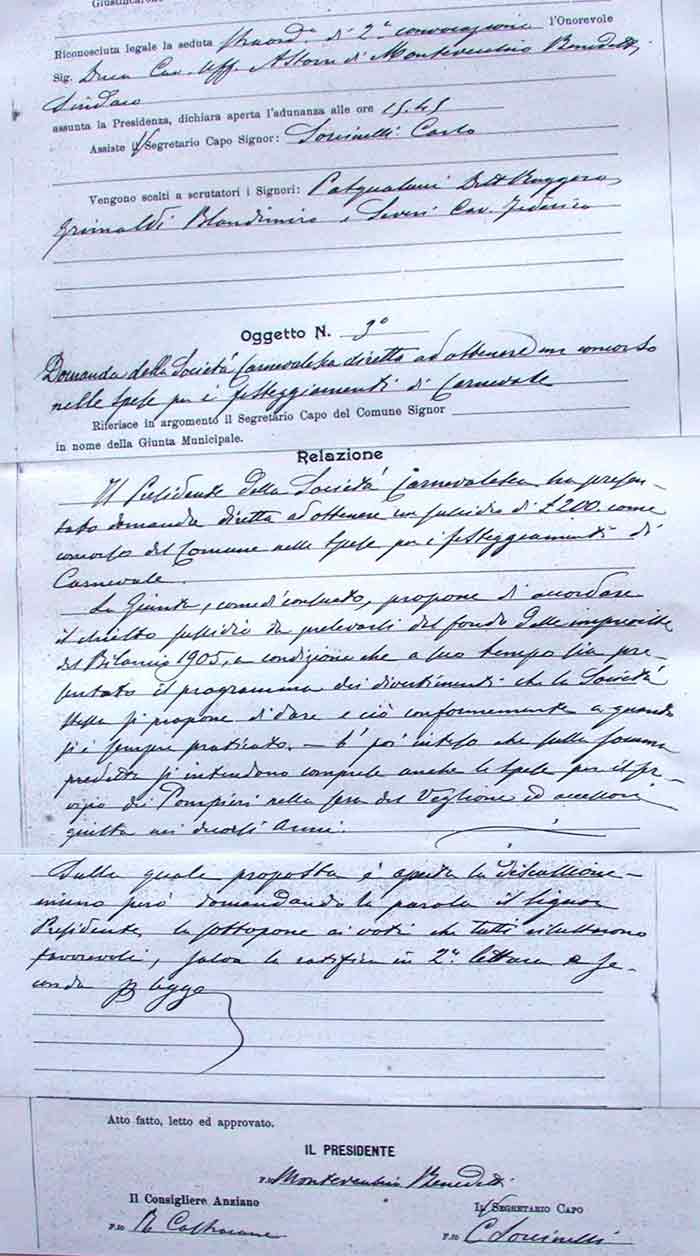 Giustificarono
Riconosciuta legale la seduta straord. di 2ª convocazione l'Onorevole
Sig. Duca Cav. Uff. Astorre di Montevecchio Benedetti
Sindaco
assunta la Presidenza, dichiara aperta l'adunanza alle ore 15.45
Assiste il Segretario Capo Signor: Soncinelli Carlo
Vengono scelti a scrutatori i Signori: Pasqualucci Dott Ruggero
Grimaldi Blandimiro e Severi Cav. Federico
Oggetto N. 3°
Domanda della Società Carnevalesca diretta ad ottenere un concorso
nelle spese per i festeggiamenti di Carnevale
Riferisce in argomento il Segretario Capo del Comune Signor
in nome della Giunta Municipale.
Relazione
Il Presidente della Società Carnevalesca ha presen-
tato domanda diretta ad ottenere un sussidio di £ 200. come
concorso del Comune nelle spese per i festeggiamenti di
Carnevale.
La Giunta, come di consueto, propone di accordare
il chiesto sussidio da prelevarsi dal fondo delle impreviste
del Bilancio 1905, a condizione che a suo tempo sia pre-
sentato il programma dei divertimenti che la Società
stessa si propone di dare e ciò conformemente a quanto
si è sempre praticato. - È poi inteso che sulla somma
predetta si intendono comprese anche le spese per il ser-
vizio dei Pompieri nella sera del Veglione ed accessori
giusta nei decorsi anni.
Sulla quale proposta è aperta la discussione
niuno però domandando la parola il Signor
Presidente la sottopone ai voti che tutti risultarono
favorevoli, salva la ratifica in 2ª lettura e se-
conda legge
Atto fatto, letto ed approvato.
IL PRESIDENTE
F.to Montevecchio Benedetti
Il Consigliere Anziano
Il Segretario Capo
F.to R. Castracane
F.to C. Soncinelli